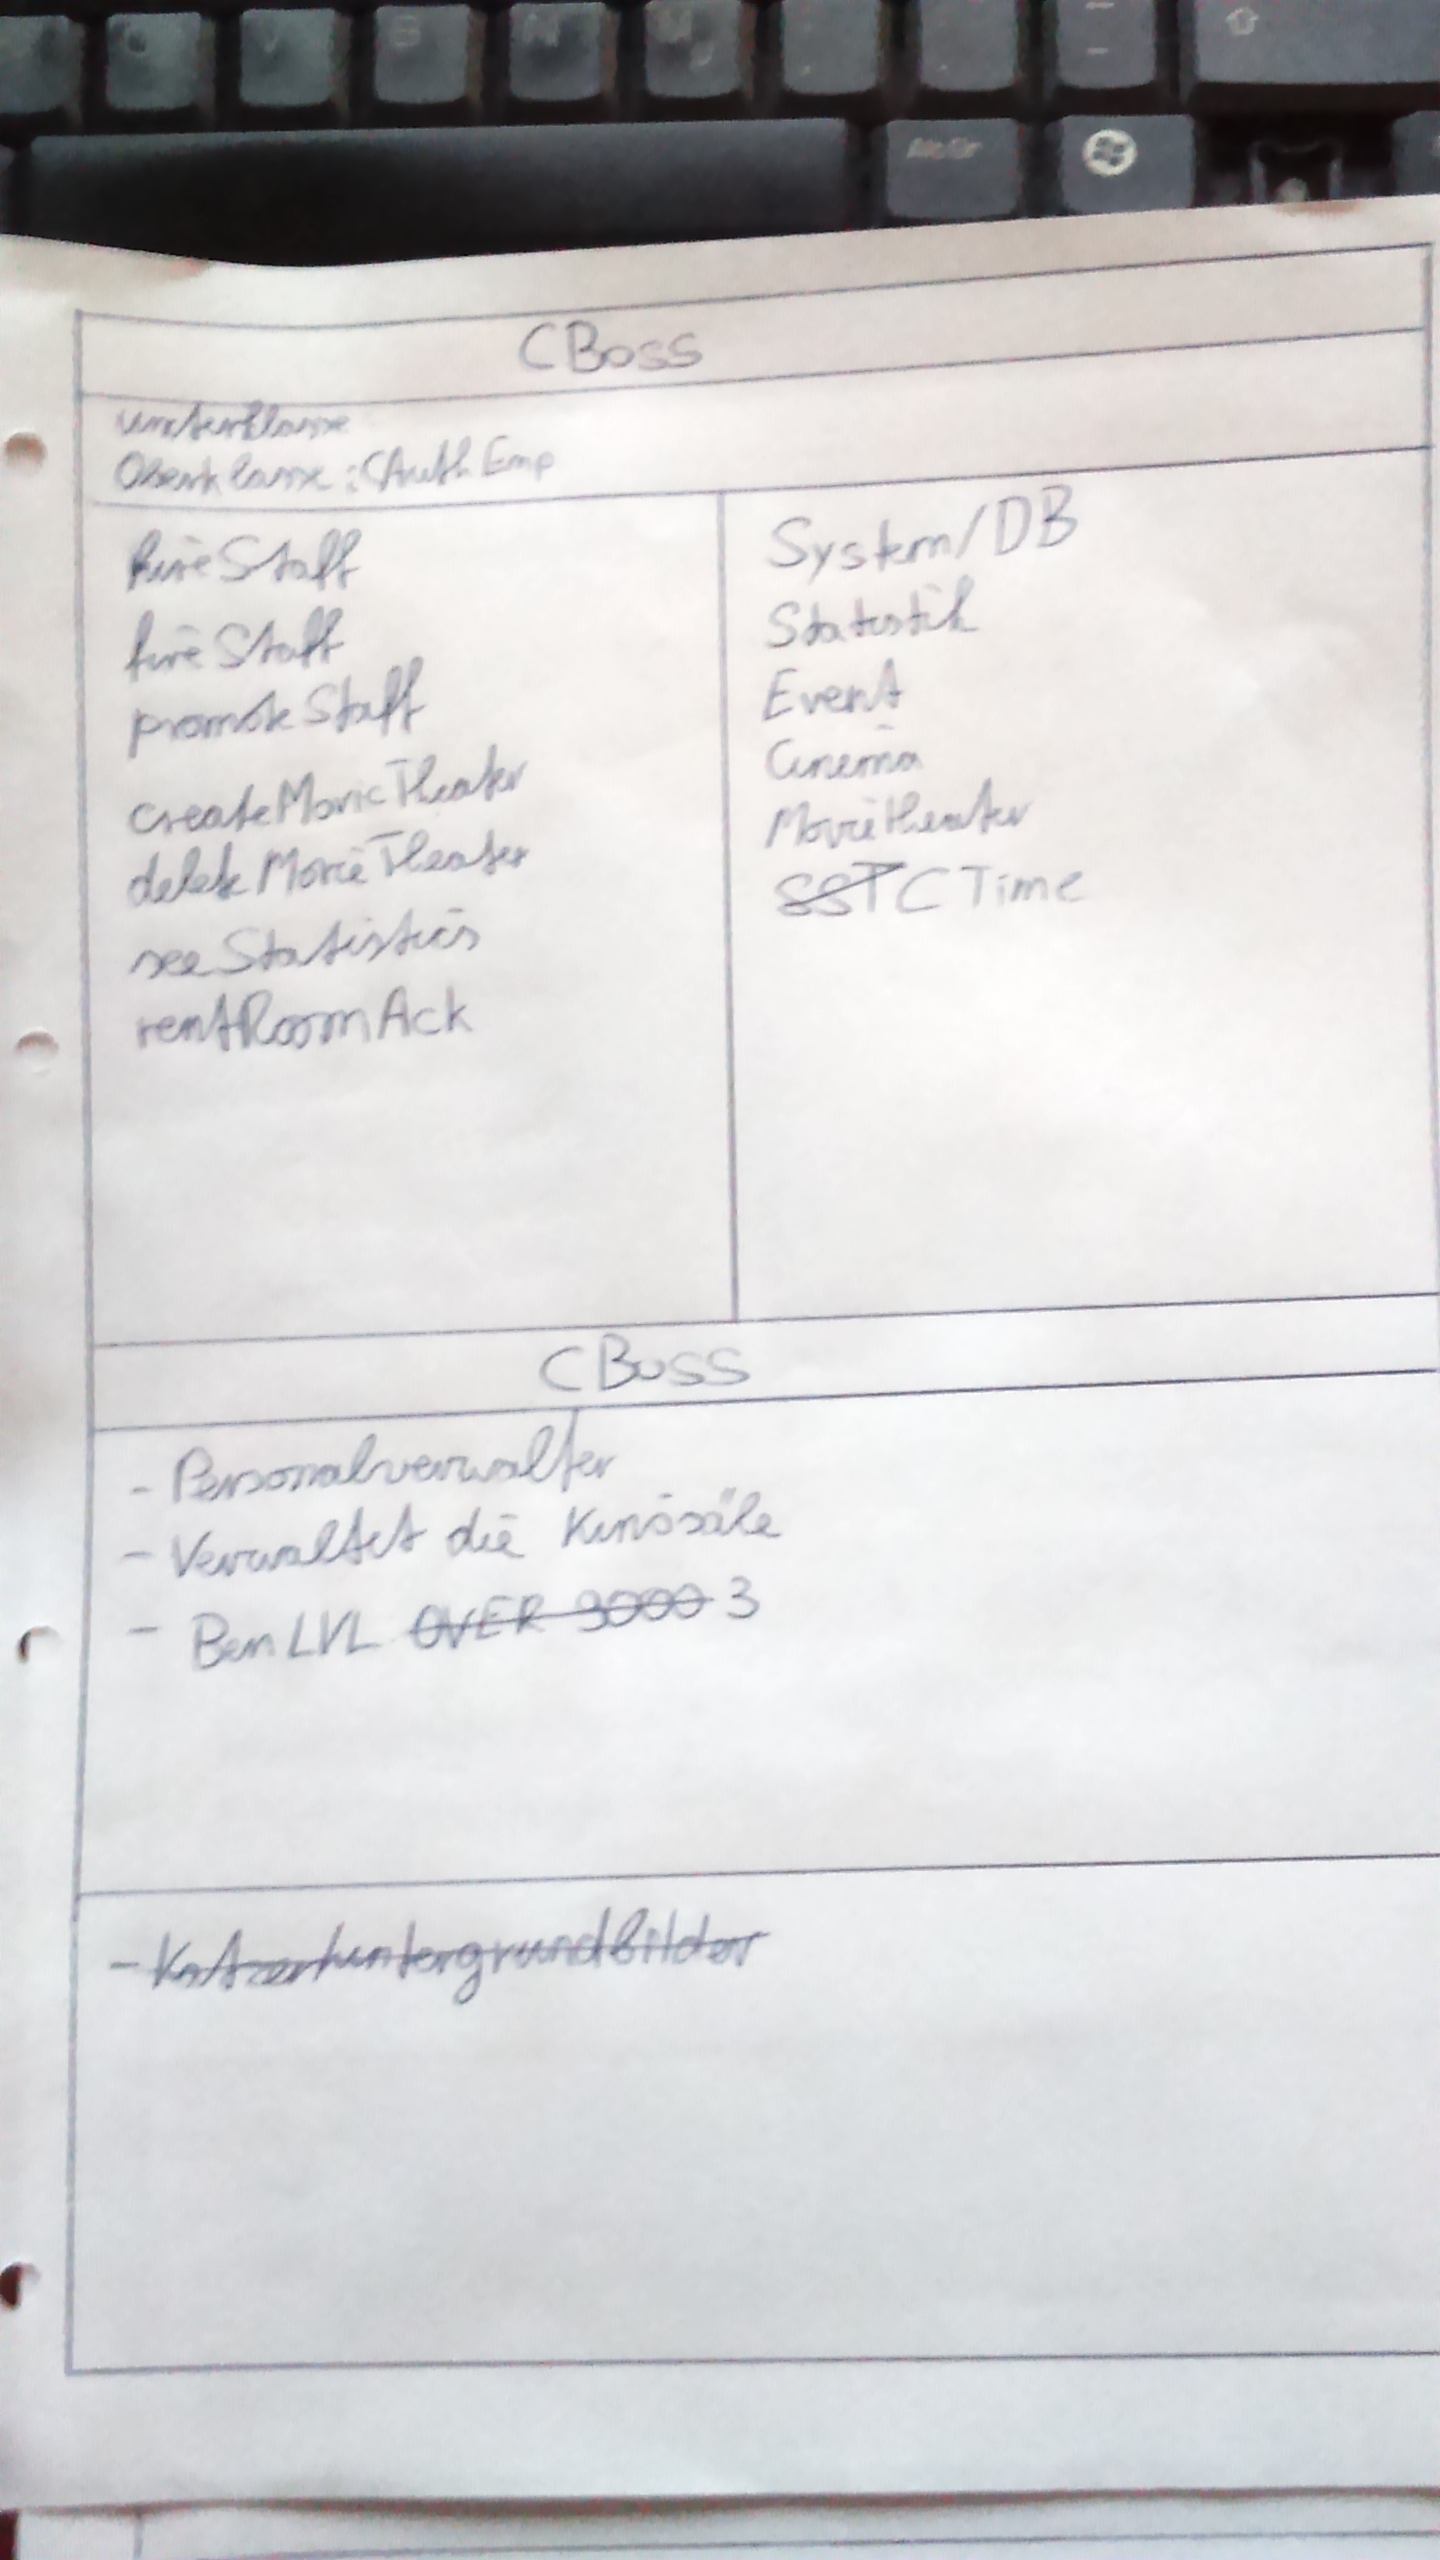 C V B N M
Alt Gr
CBoss
Unterklasse
Oberklasse: CAuthEmp
hireStaff
fireStaff
promoteStaff
createMovieTheater
deleteMovieTheater
seeStatistics
rentRoomAck
System/DB
Statistik
Event
Cinema
Movietheater
SST CTime
CBoss
- Personalverwalter
- Verwaltet die Kinosäle
- BenLVL OVER 9000 3
- Katzenhintergrundbilder